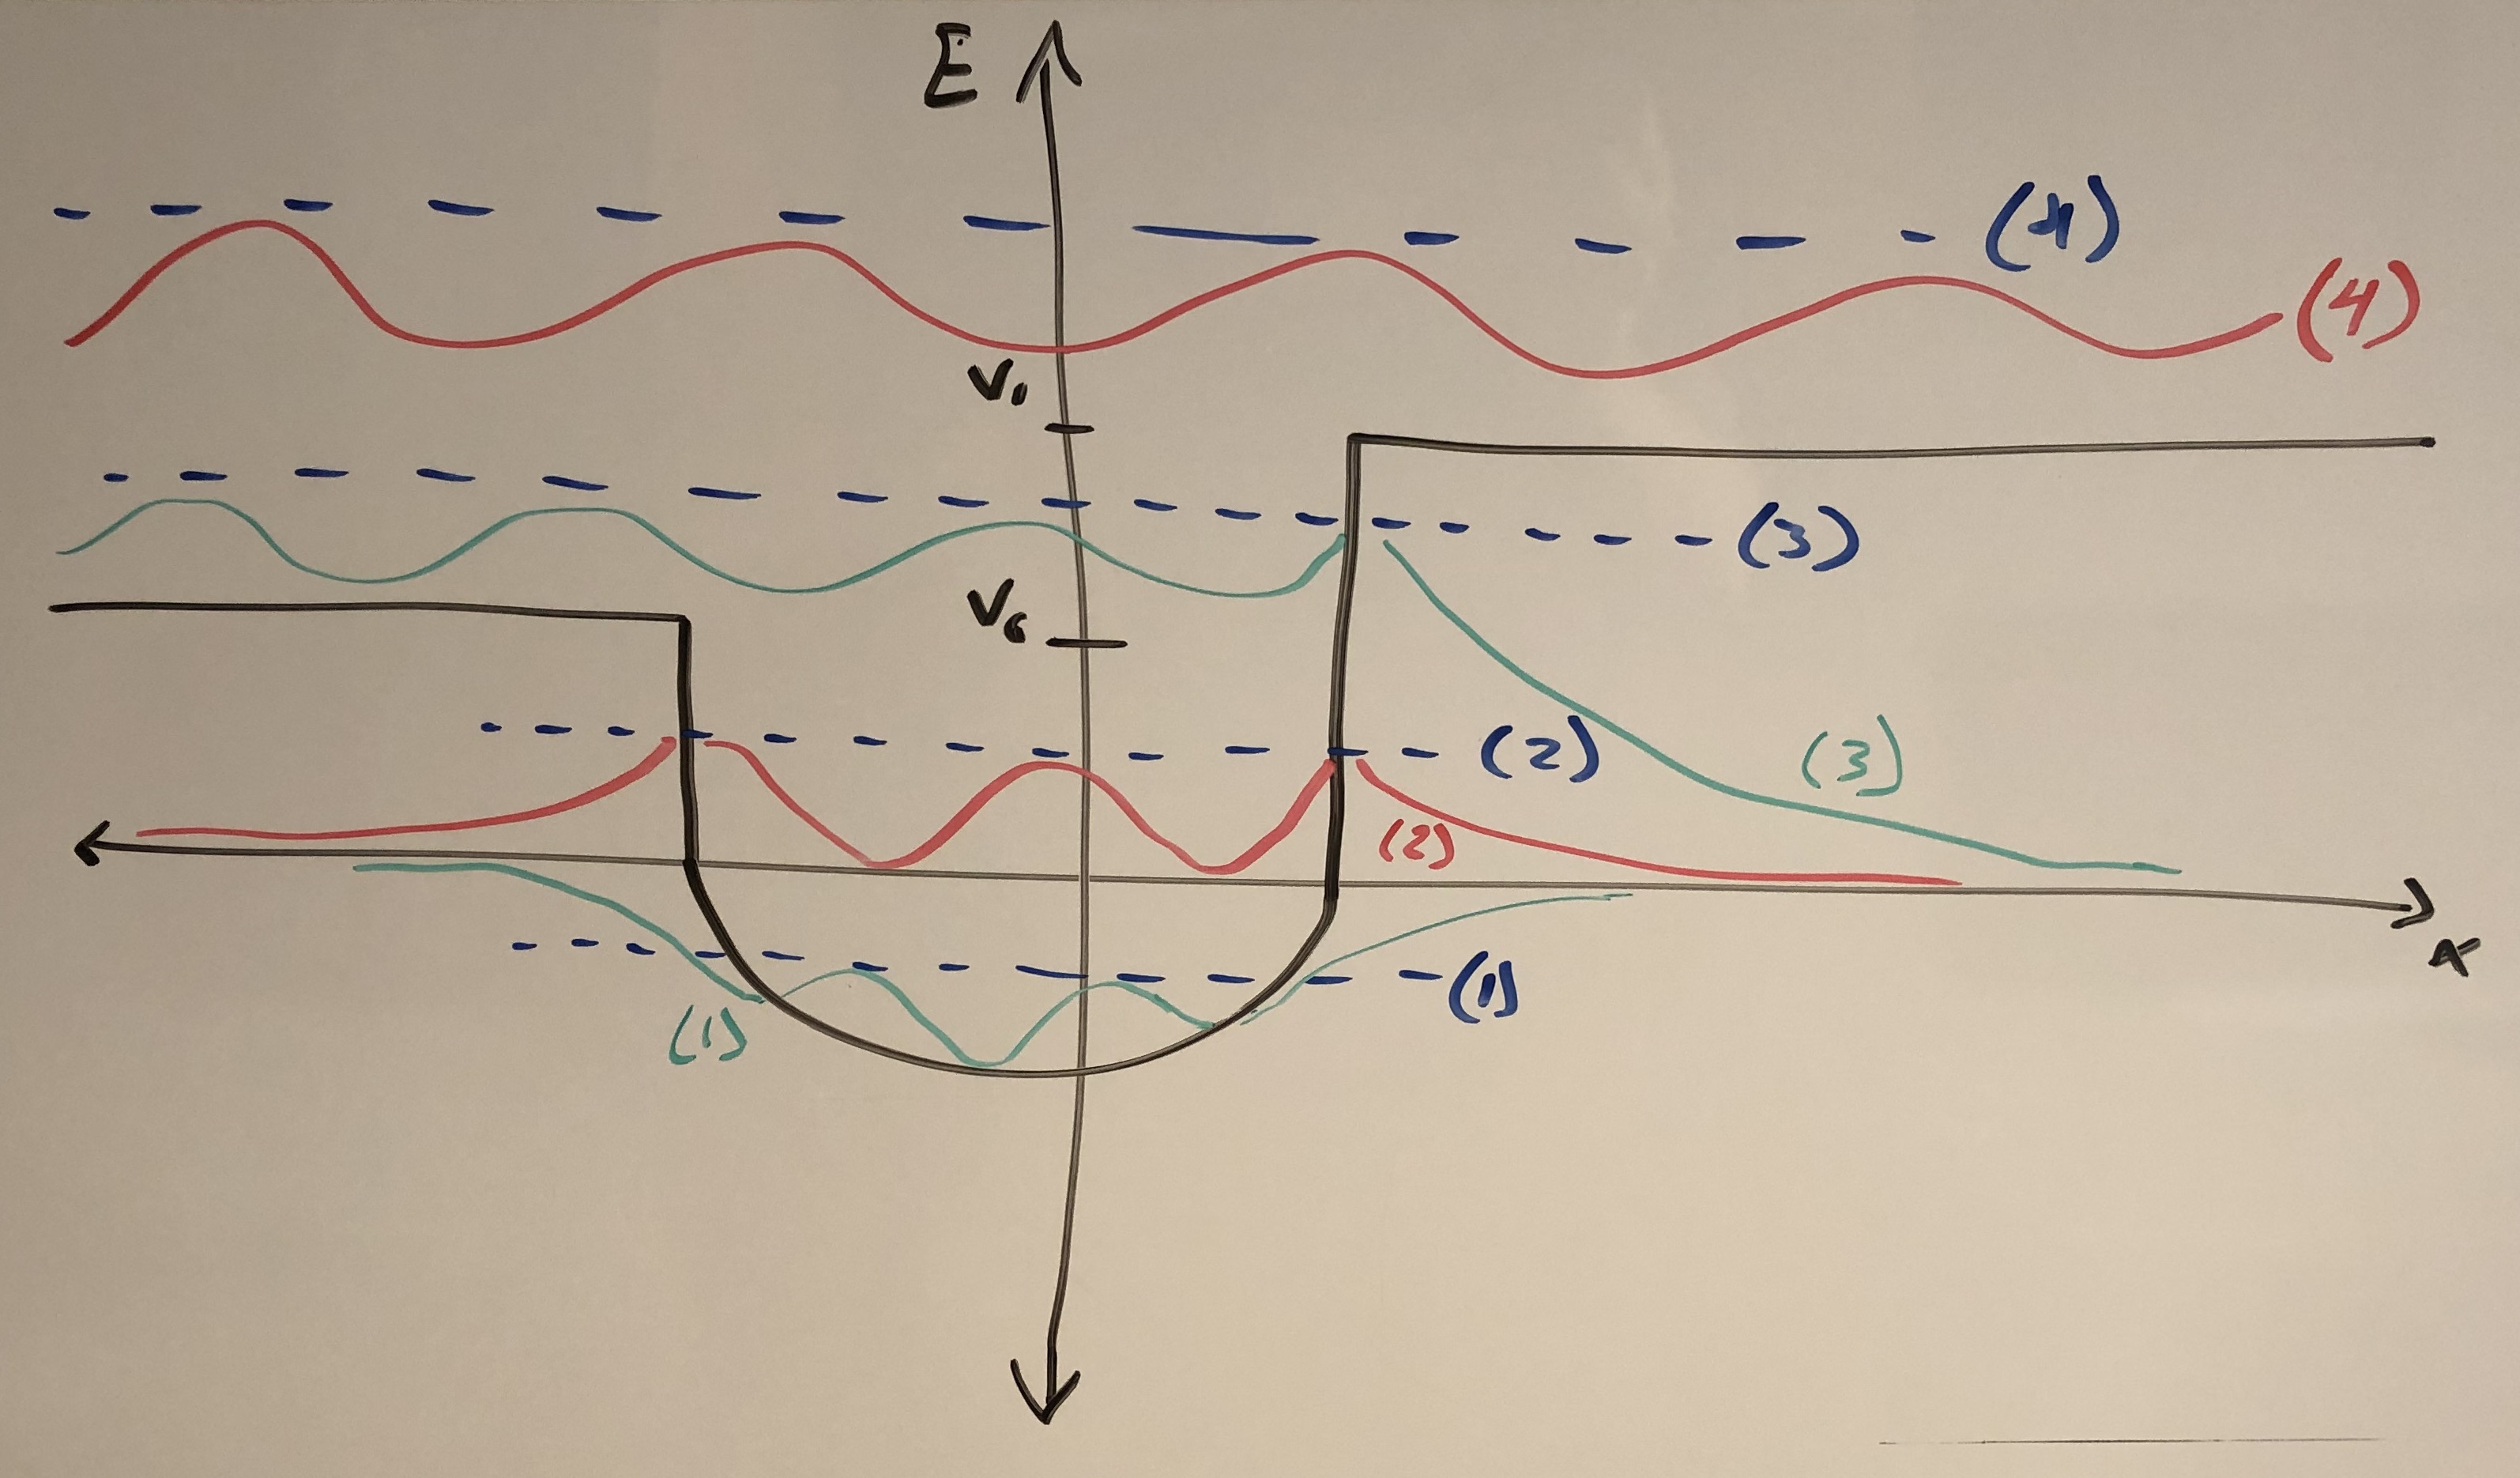 E
(4)
(4)
V₁
(3)
V₀
(2)
(3)
(2)
x
(1)
(1)